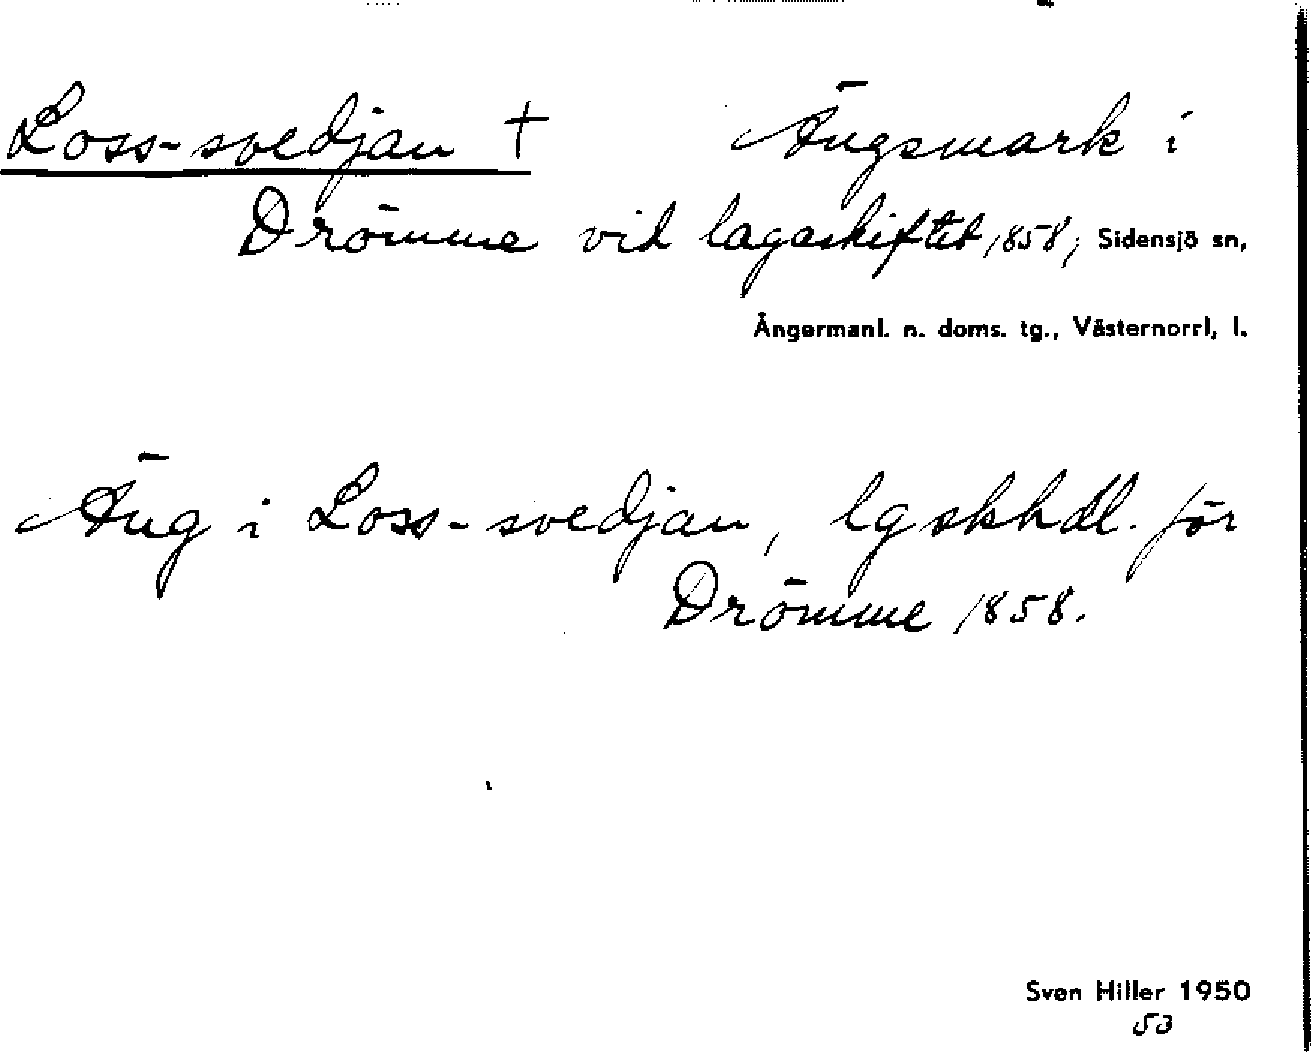 Loss-svedjan † Ängsmark i
Drömme vid lagaskiftet 1858, Sidensjö sn,
Ångermanl. n. doms. tg., Västernorrl. l.
Äng i Loss-svedjan, lgskhdl. för
Drömme 1858.
Sven Hiller 1950
53